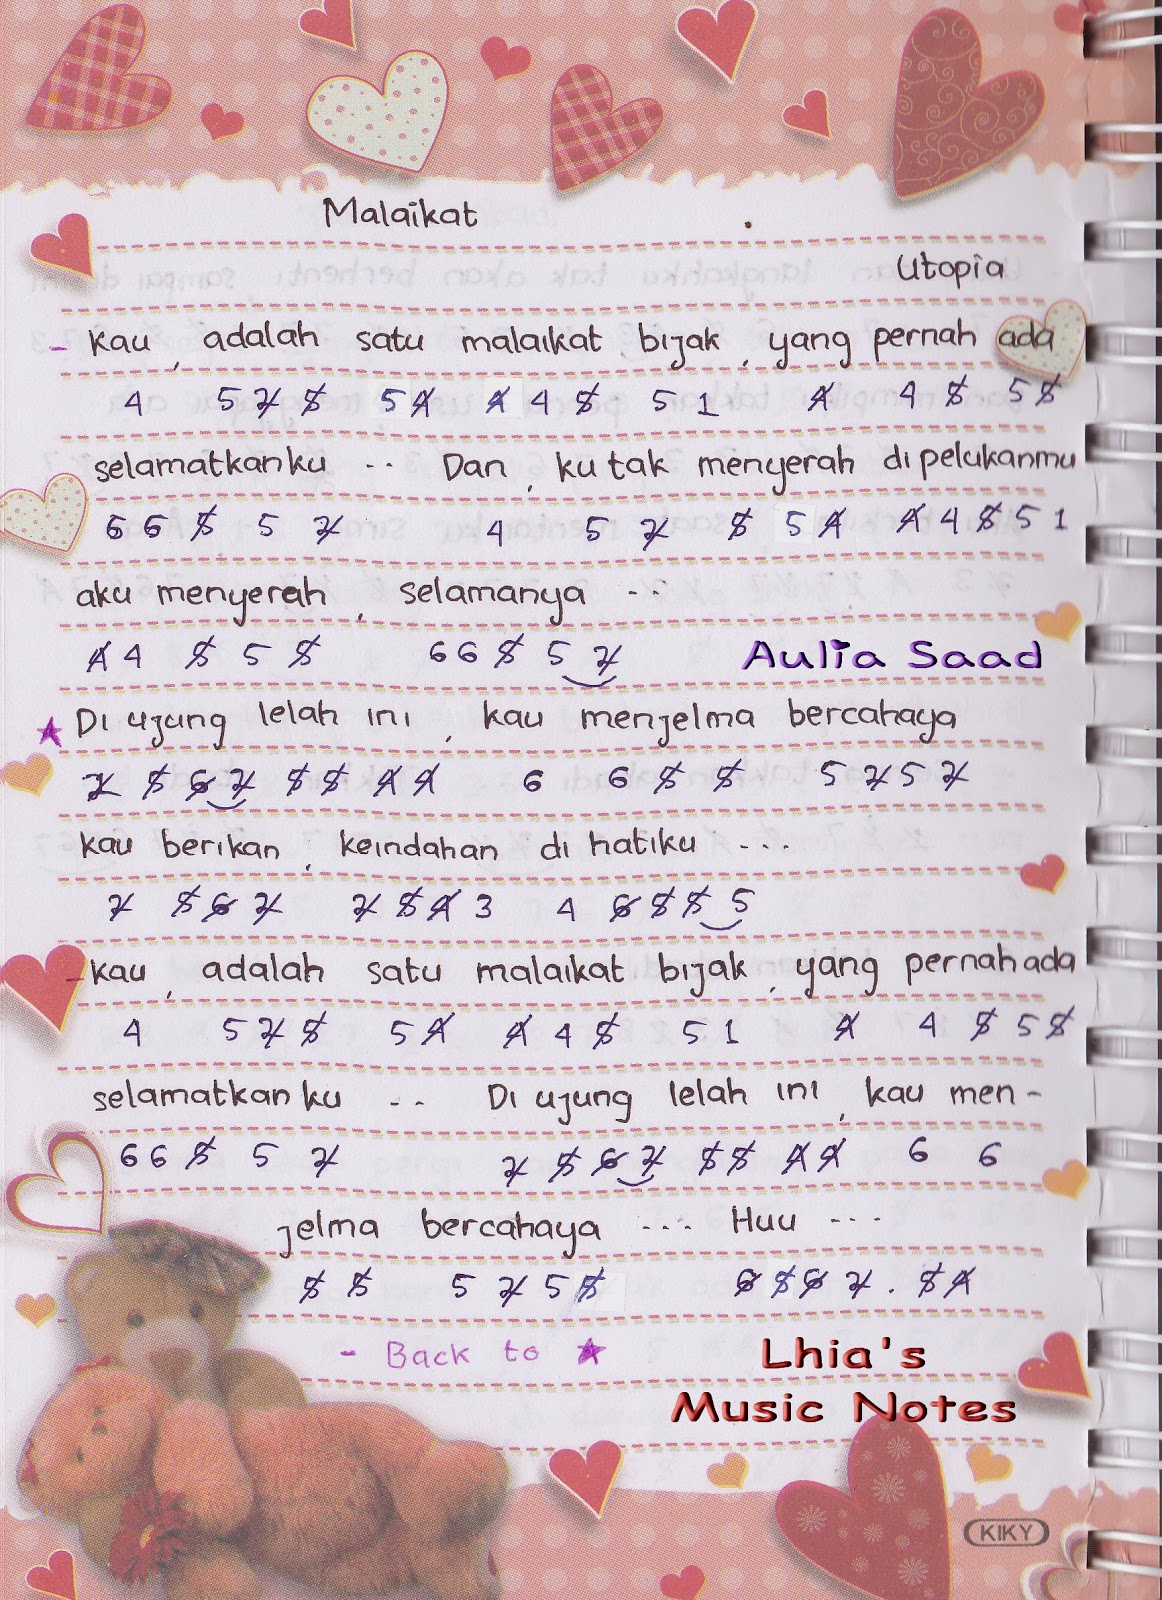 Malaikat
Utopia
- Kau, adalah satu malaikat bijak, yang pernah ada
4 5 7̸ 5̸ 5 4̸ 4̸ 4 5̸ 5 1 4̸ 4 5̸ 5 5̸
selamatkanku .. Dan, ku tak menyerah dipelukanmu
6 6 5̸ 5 7̸ 4 5 7̸ 5̸ 5 4̸ 4̸ 4 5̸ 5 1
aku menyerah, selamanya ..
4̸ 4 5̸ 5 5̸ 6 6 5̸ 5 7̸
Aulia Saad
★ Di ujung lelah ini, kau menjelma bercahaya
7̸ 5̸ 6̸ 7̸ 5̸ 5̸ 4̸ 4̸ 6 6 5̸ 5̸ 5 7̸ 5 7̸
kau berikan, keindahan di hatiku ...
7̸ 5̸ 6̸ 7̸ 7̸ 5̸ 4̸ 3 4 6̸ 5̸ 5̸ 5
- kau, adalah satu malaikat bijak, yang pernah ada
4 5 7̸ 5̸ 5 4̸ 4̸ 4 5̸ 5 1 4̸ 4 5̸ 5 5̸
selamatkanku .. Di ujung lelah ini, kau men-
6 6 5̸ 5 7̸ 7̸ 5̸ 6̸ 7̸ 5̸ 5̸ 4̸ 4̸ 6 6
jelma bercahaya .... Huu ...
5̸ 5̸ 5 7̸ 5 5̸ 6̸ 5̸ 6̸ 7̸ . 5̸ 4̸
- Back to ★
Lhia's
Music Notes
KIKY